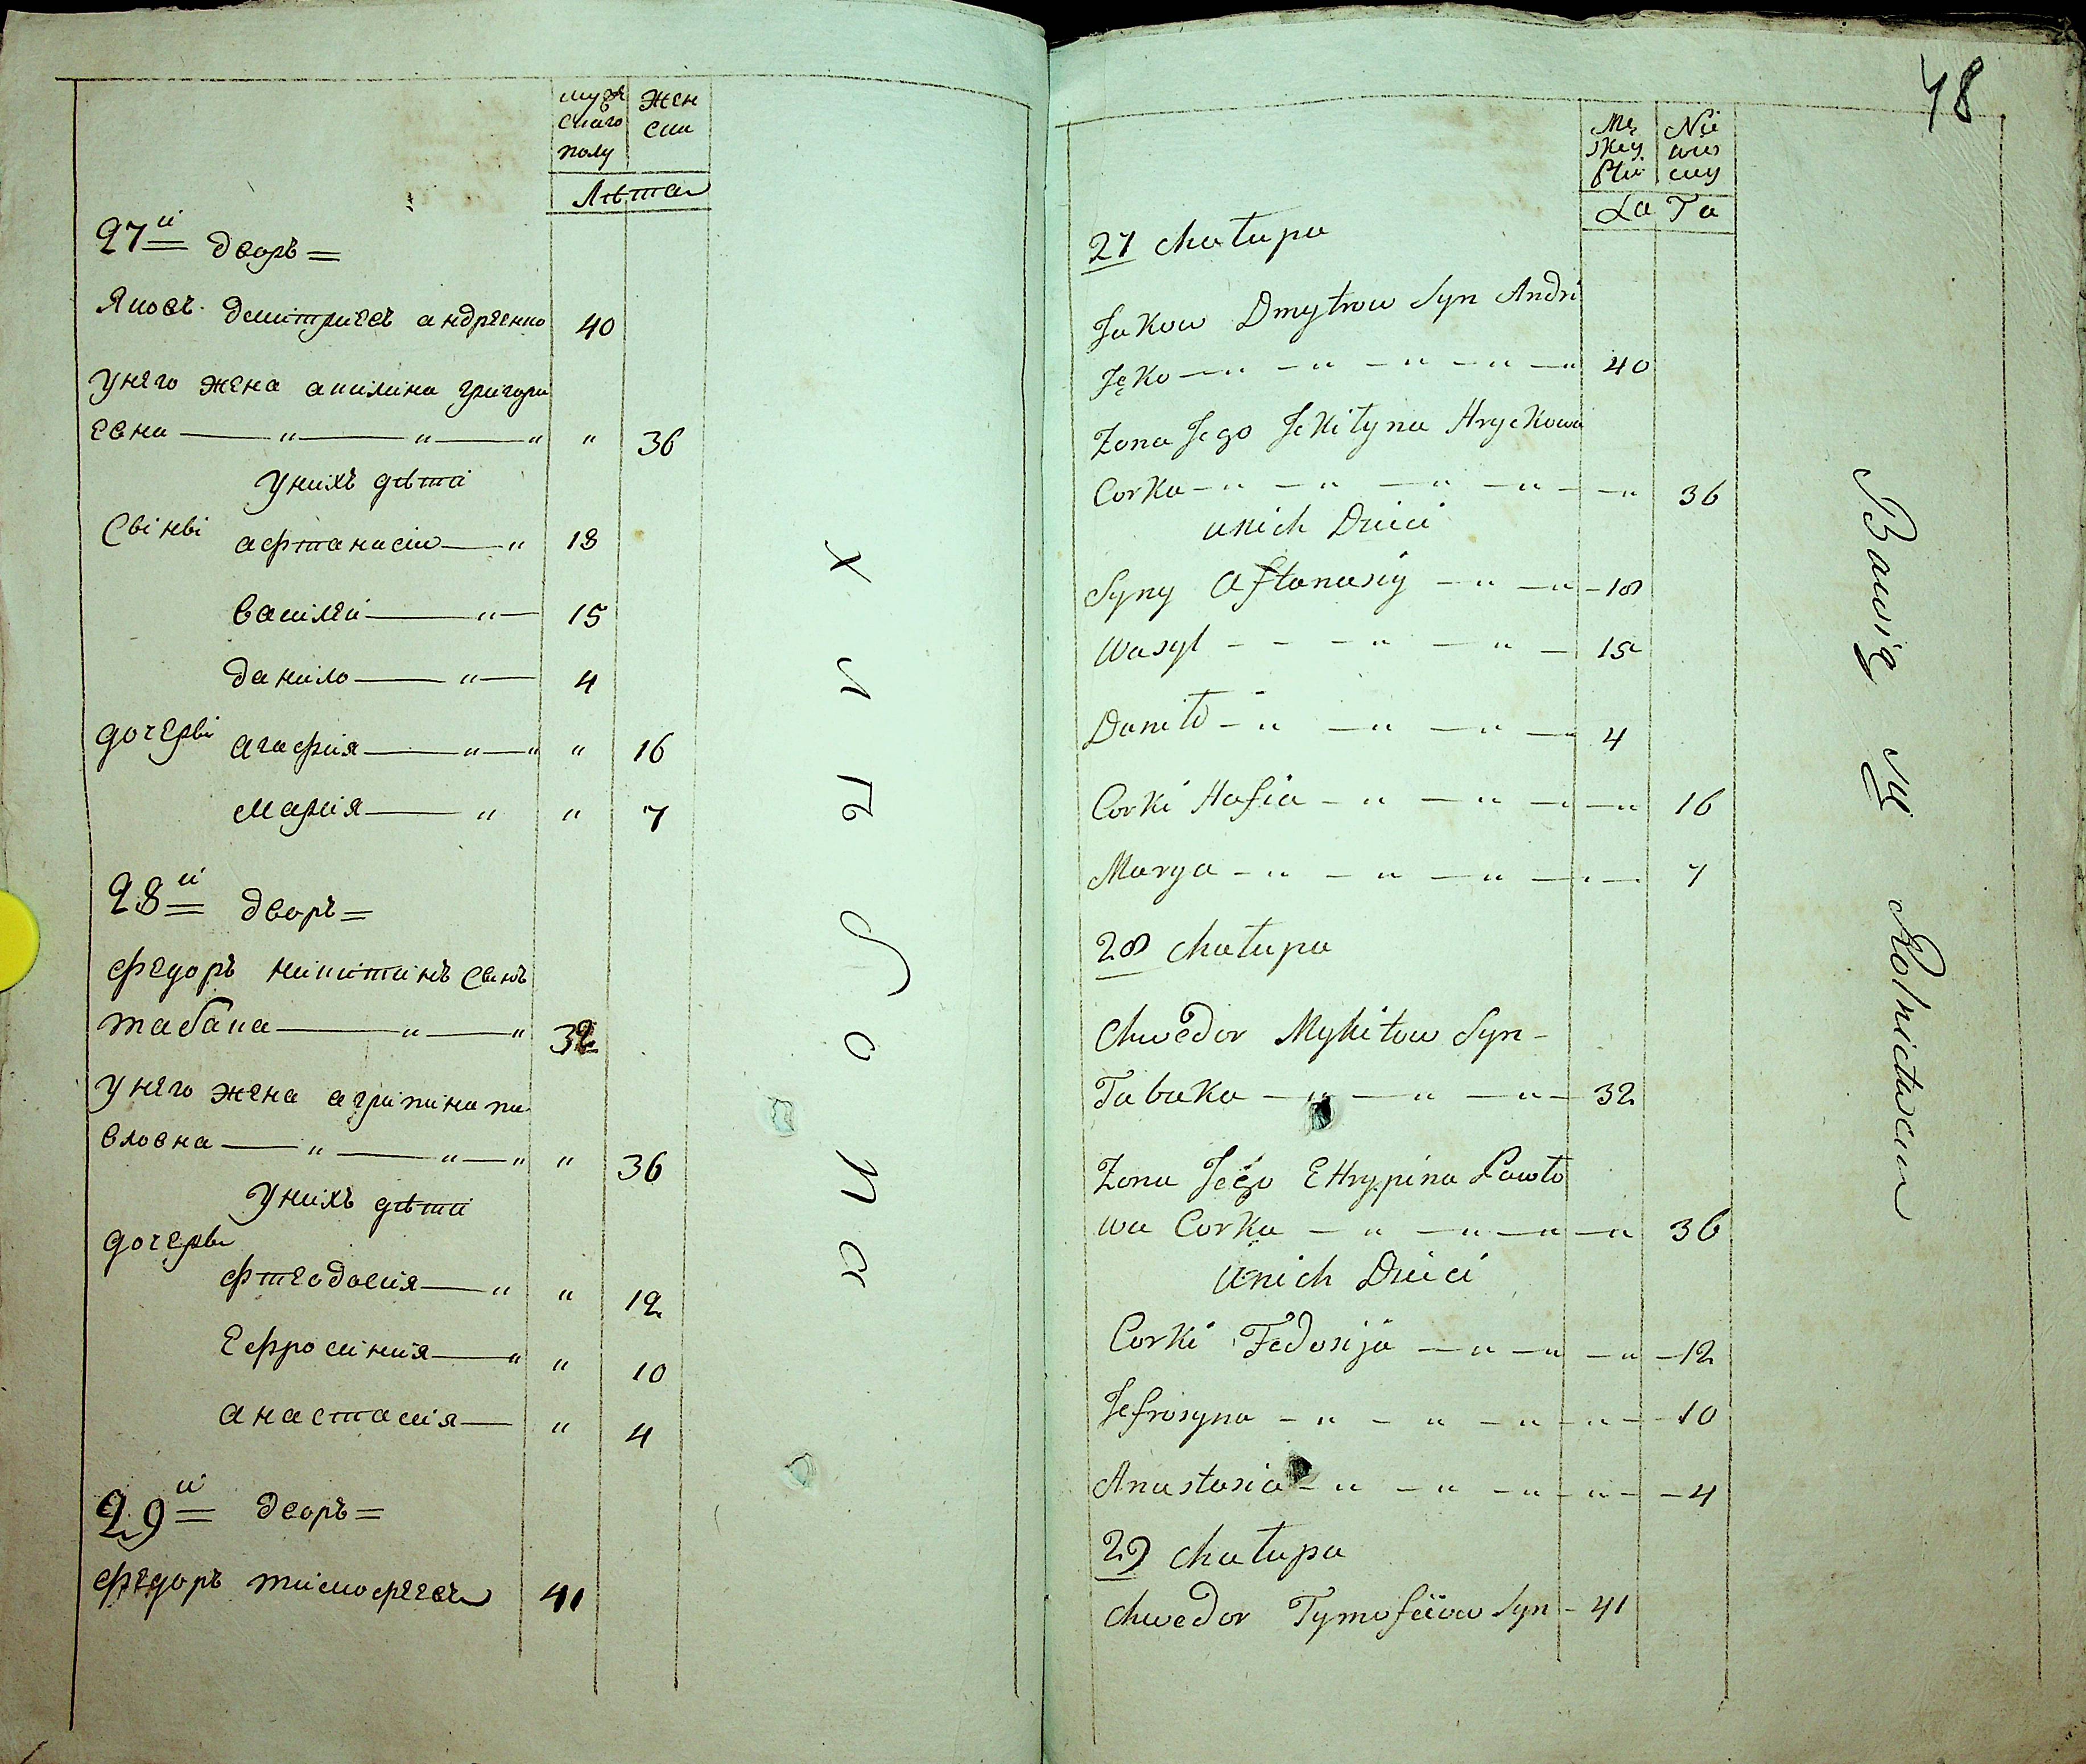 мужескаго полу
женски
Лѣта
27й дворъ
Яковъ дмитриевъ андреенко 40
У него жена акилина григори
евна " 36
У нихъ дѣти
Сыновѣ афтанасии 18
василеи 15
данило 4
дочери агафия " 16
Мария " 7
28й дворъ
федоръ никитинъ сынъ
табака 32
У него жена агрипина па
вловна " 36
У нихъ дѣти
дочери
фтеодосия " 12
Ефросиния " 10
анастасия " 4
29й дворъ
федоръ тимофеевъ 41
хлѣбопа
48
Mę
skiey
Płci
Nie
wies
ciey
La Ta
27 chałupa
Jakow Dmytrow Syn Andri
Jęko 40
Zona Jego Jekiłyna Hryckowa
Corka 36
u nich Dzieci
Syny Aftanasiy 18
Wasyl 15
Daniło 4
Corki Hafia 16
Marya 7
28 chałupa
Chwedor Mykitow Syn
Tabaka 32
Zona Jego EHrypina Pawło
wa Corka 36
U nich Dzieci
Corki Fedosija 12
Jefrosyna 10
Anastasia 4
29 chałupa
Chwedor Tymofiiow Syn 41
Bawią się Rolnictwem